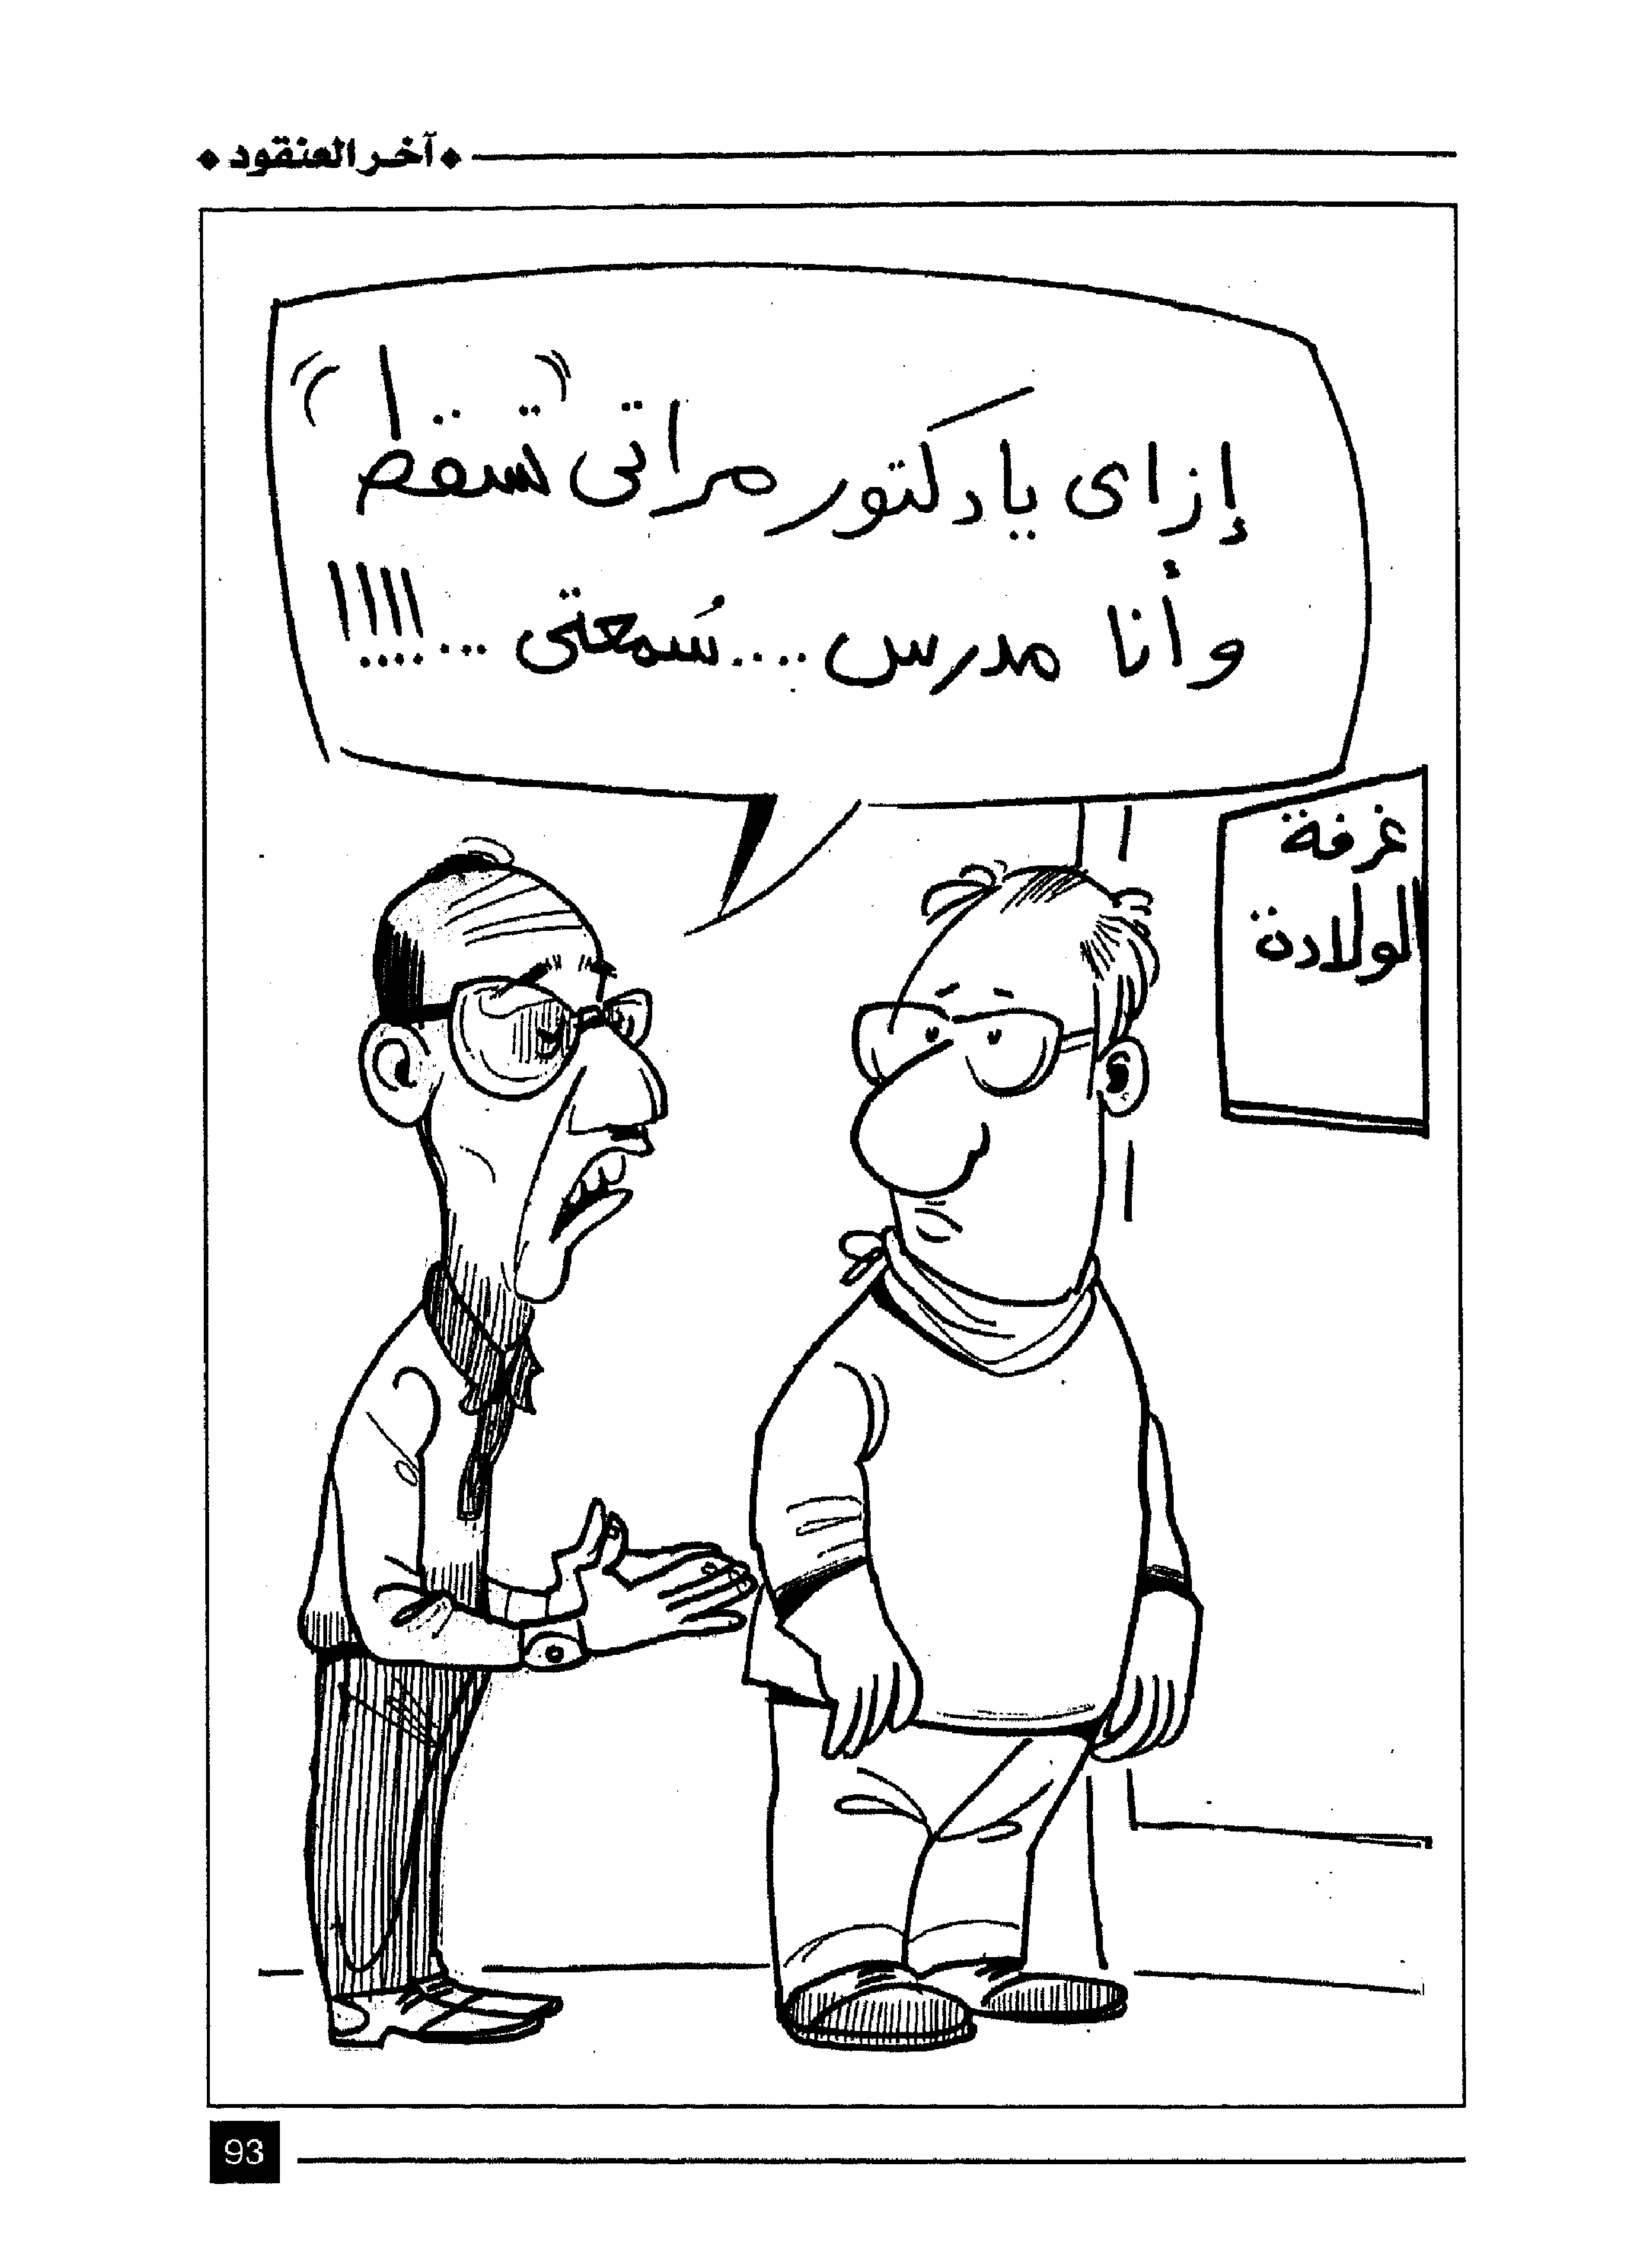 ◆ آخر العنقود ◆
إزاى يا دكتور مراتى "تسقط"
وأنا مدرس .... سُمعتى ... !!!!
غرفة
الولادة
93